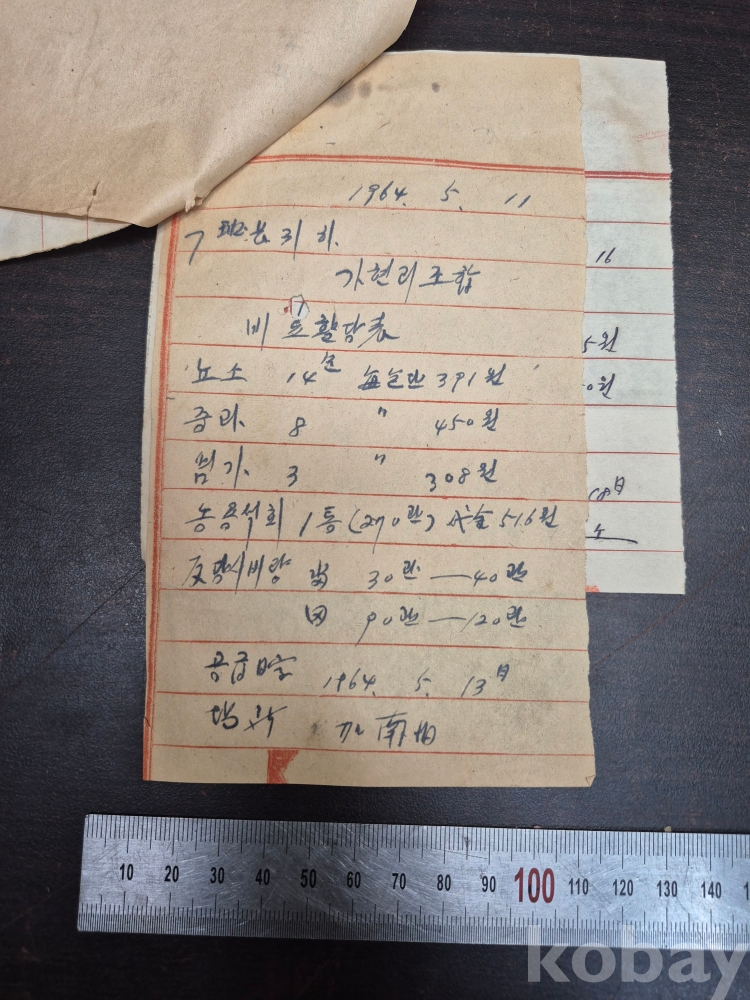 1964. 5. 11
7班長 귀하.
가현리조합
비료할당表
뇨소 14 每 391원
중과. 8 〃 450원
염가. 3 〃 308원
농용석회 1통(270관) 516원
反當시비량 畓 30관—40관
田 90관—120관
공급日字 1964. 5. 13日
場所
16
5원
0원
日
10 20 30 40 50 60 70 80 90 100 110 120 130 140
kobay